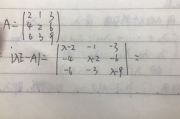 A = ( 2 1 3
4 2 6
6 3 9 )
|λE-A| = | λ-2 -1 -3
-4 λ-2 -6
-6 -3 λ-9 | =